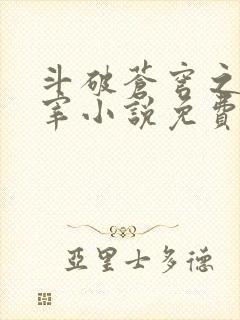 斗破蒼穹之
宰小說免費
亞里士多德